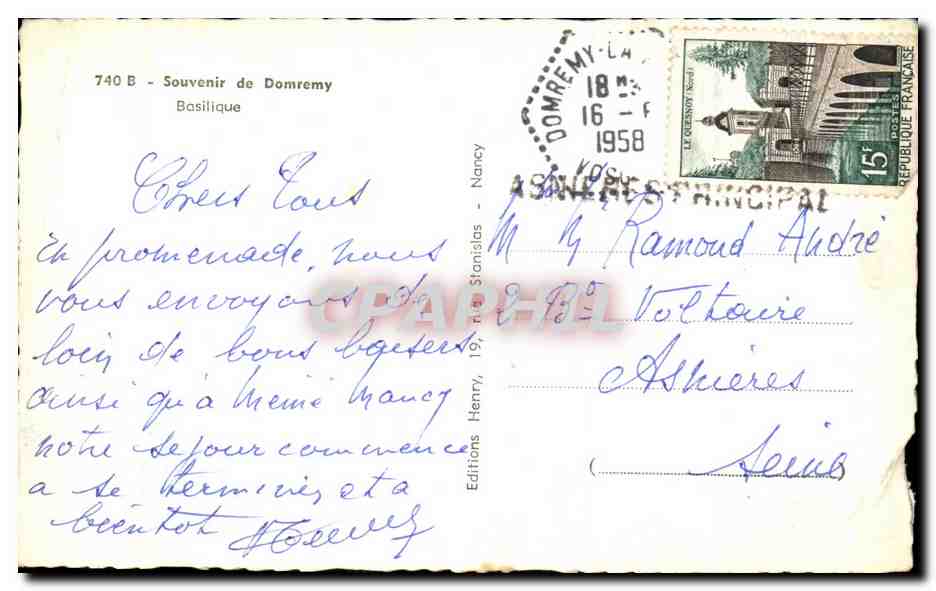 740 B - Souvenir de Domremy
Basilique
Chers Tous
En promenade, nous
vous envoyons de
loin de bons baisers
ainsi qu'à Mémé Nancy
notre sejour commence
a se terminer et a
bientot
Editions Henry, 19, rue Stanislas - Nancy
DOMREMY-LA
18 H
16 -
1958
VOSG
ASNIERES PRINCIPAL
LE QUESNOY (Nord)
15F
POSTES
REPUBLIQUE FRANÇAISE
M Ramond André
2 Bd Voltaire
Asnieres
(Seine)
CPAPHIL